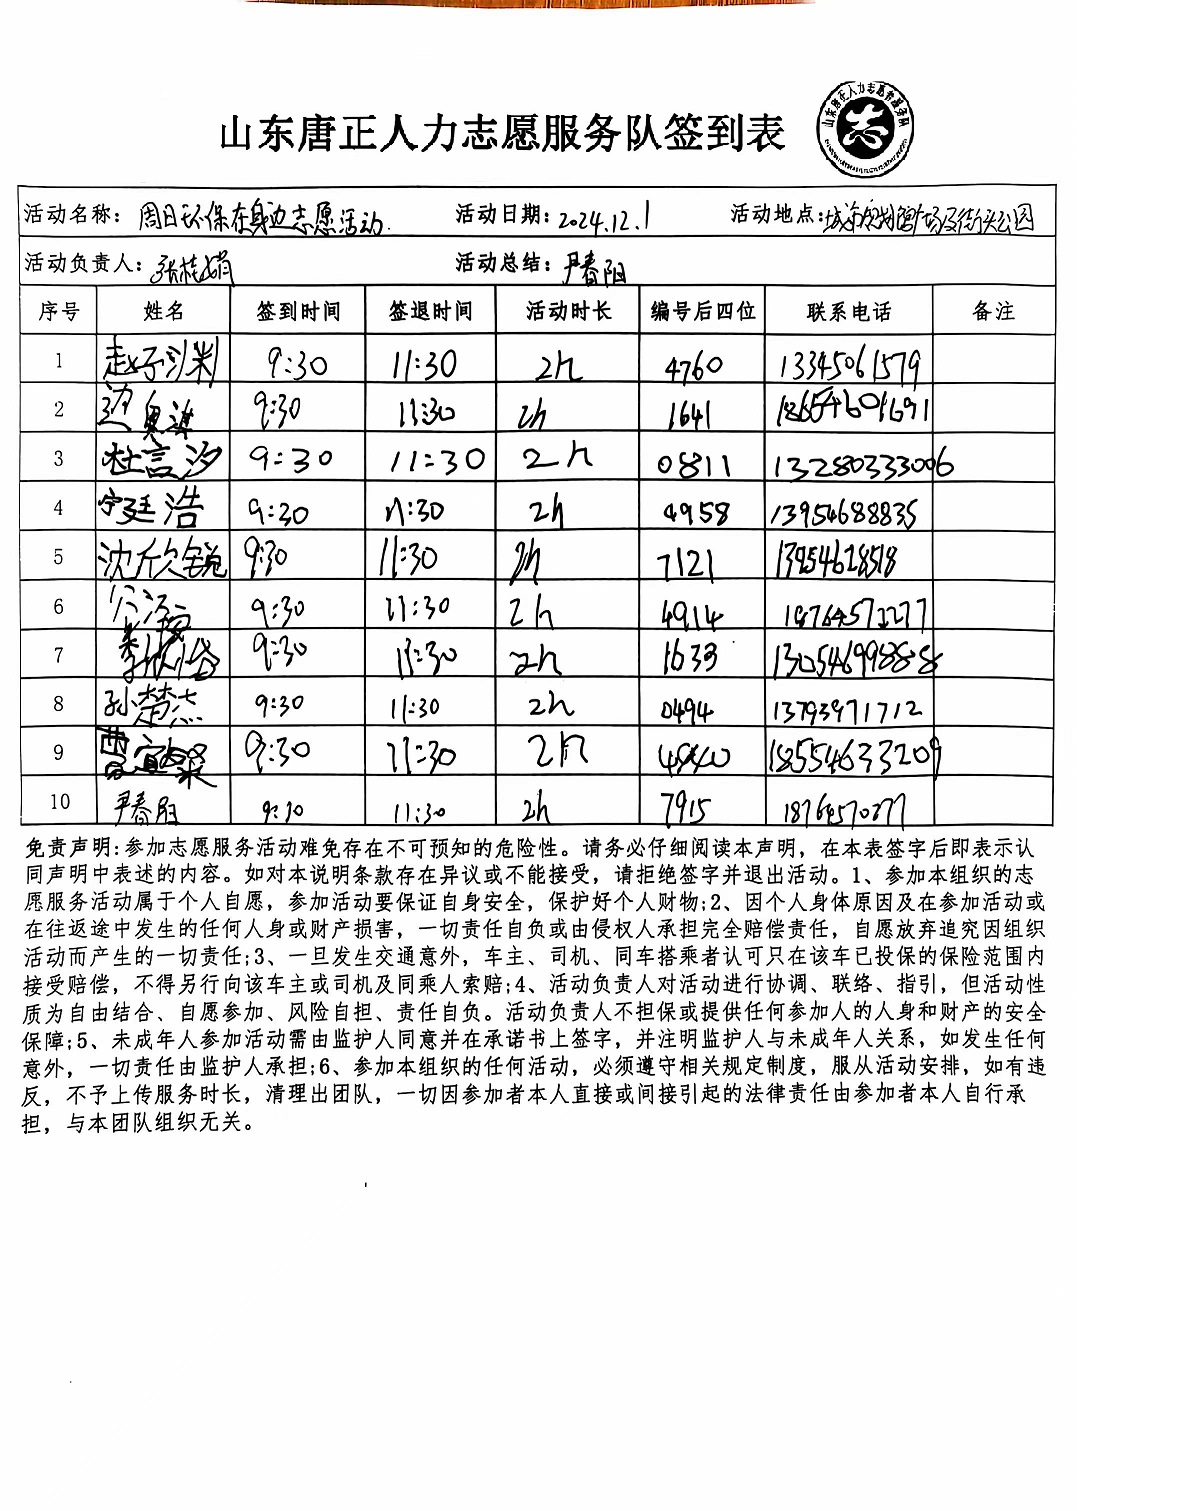 山东唐正人力志愿服务队签到表
山东唐正人力志愿者服务队
活动名称：周日环保在身边志愿活动 活动日期：2024.12.1 活动地点：广场及街头公园
活动负责人：张桂娟 活动总结：尹春阳
序号 姓名 签到时间 签退时间 活动时长 编号后四位 联系电话 备注
1 赵子 9:30 11:30 2h 4760 13345061579
2 边奥 9:30 11:30 2h 1641
3 杜言汐 9:30 11:30 2h 0811 13280333006
4 宁廷浩 9:30 11:30 2h 4958 13954688835
5 沈欣锐 9:30 11:30 2h 7121 13954628518
6 9:30 11:30 2h 4914 18764571277
7 李 9:30 11:30 2h 1633 13054699888
8 孙楚杰 9:30 11:30 2h 0494 13793971712
9 曹宣 9:30 11:30 2h 18554633209
10 尹春阳 9:30 11:30 2h 7915
免责声明:参加志愿服务活动难免存在不可预知的危险性。请务必仔细阅读本声明，在本表签字后即表示认
同声明中表述的内容。如对本说明条款存在异议或不能接受，请拒绝签字并退出活动。1、参加本组织的志
愿服务活动属于个人自愿，参加活动要保证自身安全，保护好个人财物;2、因个人身体原因及在参加活动或
在往返途中发生的任何人身或财产损害，一切责任自负或由侵权人承担完全赔偿责任，自愿放弃追究因组织
活动而产生的一切责任;3、一旦发生交通意外，车主、司机、同车搭乘者认可只在该车已投保的保险范围内
接受赔偿，不得另行向该车主或司机及同乘人索赔;4、活动负责人对活动进行协调、联络、指引，但活动性
质为自由结合、自愿参加、风险自担、责任自负。活动负责人不担保或提供任何参加人的人身和财产的安全
保障;5、未成年人参加活动需由监护人同意并在承诺书上签字，并注明监护人与未成年人关系，如发生任何
意外，一切责任由监护人承担;6、参加本组织的任何活动，必须遵守相关规定制度，服从活动安排，如有违
反，不予上传服务时长，清理出团队，一切因参加者本人直接或间接引起的法律责任由参加者本人自行承
担，与本团队组织无关。